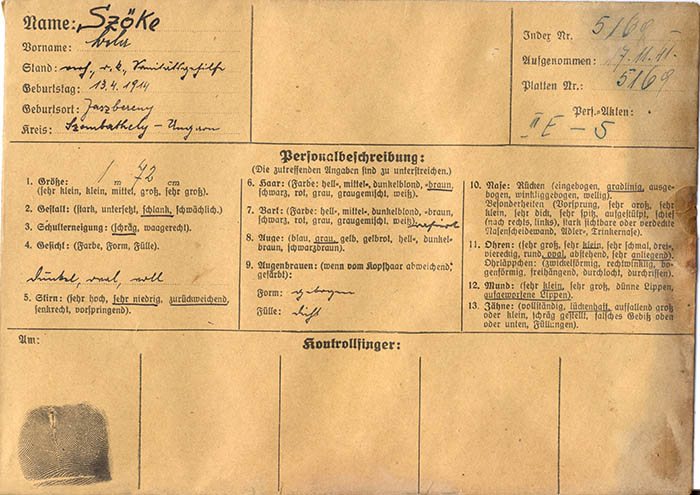 Name: Szöke
Vorname: Bela
Stand: verh., r. k., Sanitätsgehilfe
Geburtstag: 13. 4. 1914
Geburtsort: Jaszbereny
Kreis: Szombathely - Ungarn
Index Nr. 5169
Aufgenommen: 7. 11. 41.
Platten Nr.: 5169
Pers.-Akten:
II E - S
Personalbeschreibung:
(Die zutreffenden Angaben sind zu unterstreichen).
1. Größe: 1 m 72 cm
(sehr klein, klein, mittel, groß, sehr groß).
2. Gestalt: (stark, untersetzt, schlank, schwächlich.)
3. Schulterneigung: (schräg, waagerecht).
4. Gesicht: (Farbe, Form, Fülle).
dunkel, oval, voll
5. Stirn: (sehr hoch, sehr niedrig, zurückweichend,
senkrecht, vorspringend).
6. Haar: (Farbe: hell-, mittel-, dunkelblond, -braun,
schwarz, rot, grau, graugemischt, weiß).
7. Bart: (Farbe: hell-, mittel-, dunkelblond, -braun,
schwarz, rot, grau, graugemischt, weiß)
8. Auge: (blau, grau, gelb, gelbrot, hell-, dunkel-
braun, schwarzbraun).
9. Augenbrauen: (wenn vom Kopfhaar abweichend,
gefärbt):
Form: gebogen
Fülle: dicht
10. Nase: Rücken (eingebogen, gradlinig, ausge-
bogen, winkliggebogen, wellig).
Besonderheiten (Vorsprung, sehr groß, sehr
klein, sehr dick, sehr spitz, aufgestülpt, schief
(nach rechts, links), stark sichtbare oder verdeckte
Nasenscheidewand, Adler-, Trinkernase).
11. Ohren: (sehr groß, sehr klein, sehr schmal, drei-,
viereckig, rund, oval, abstehend, sehr anliegend).
Ohrläppchen: (zwickelförmig, rechtwinklig, bo-
genförmig, freihängend, durchlocht, durchrissen).
12. Mund: (sehr klein, sehr groß, dünne Lippen,
aufgeworfene Lippen).
13. Zähne: (vollständig, lückenhaft, auffallend groß
oder klein, schräg gestellt, falsches Gebiß oben
oder unten, Füllungen).
Am:
Kontrollfinger: